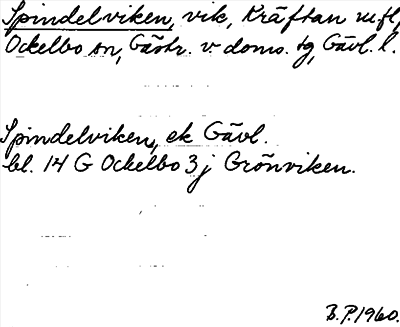 Spindelviken, vik, Kräftan m.fl,
Ockelbo sn, Gästr. v doms. tg, Gävl. l.
Spindelviken, ek Gävl.
bl. 14 G Ockelbo 3 j Grönviken.
B.P. 1960.